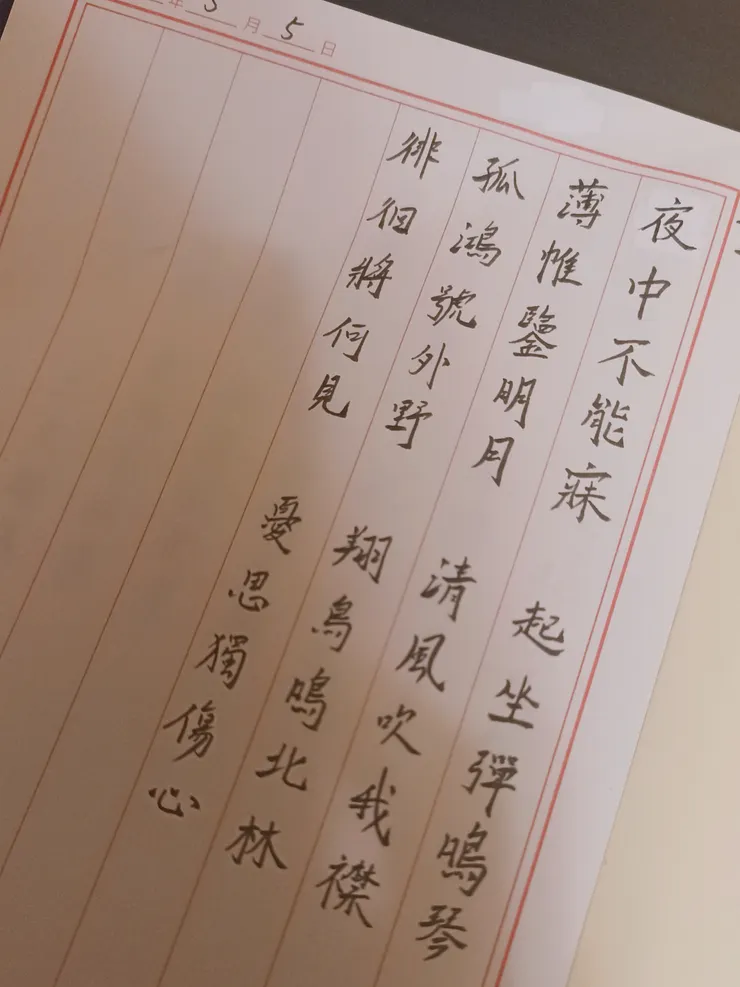 年 3 月 5 日
夜中不能寐 起坐彈鳴琴
薄帷鑒明月 清風吹我襟
孤鴻號外野 翔鳥鳴北林
徘徊將何見 憂思獨傷心